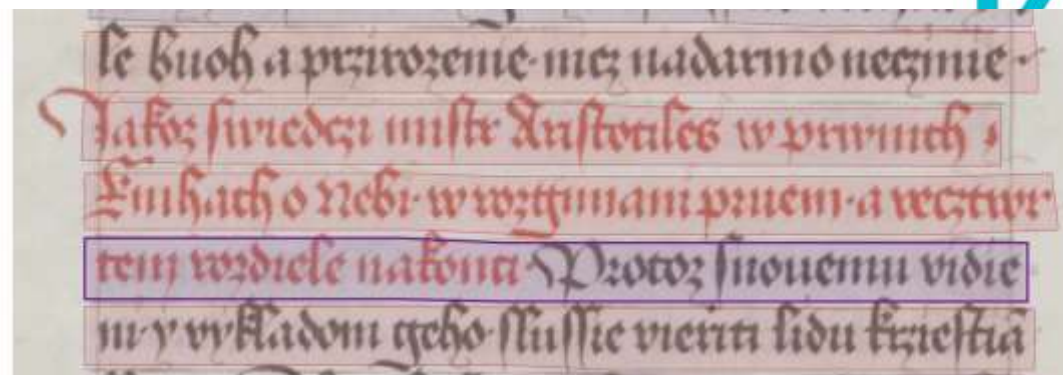 se buoh a przirozenie· nicz nadarmo neczinie·
Jakoz swiedczi mistr Aristotiles w prwnich
Knihach o Nebi· w rozgimani prwem· a wecztwr
tem rozdiele nakonci Protoz snouemu vidie
ni· y vykladom geho· slussie vieriti lidu krziestiā